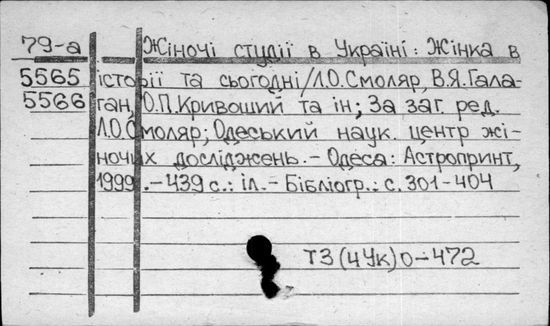 79-а Жіночі студії в Україні: Жінка в
5565 історії та сьогодні/Л.О.Смоляр, В.Я.Гала-
5566 ган, О.П.Кривоший та ін; За заг. ред.
Л.О.Смоляр; Одеський наук. центр жі-
ночих досліджень.-Одеса: Астропринт,
1999.-439 с.: іл.-Бібліогр.: с. 301-404
Т3(4Ук)0-472